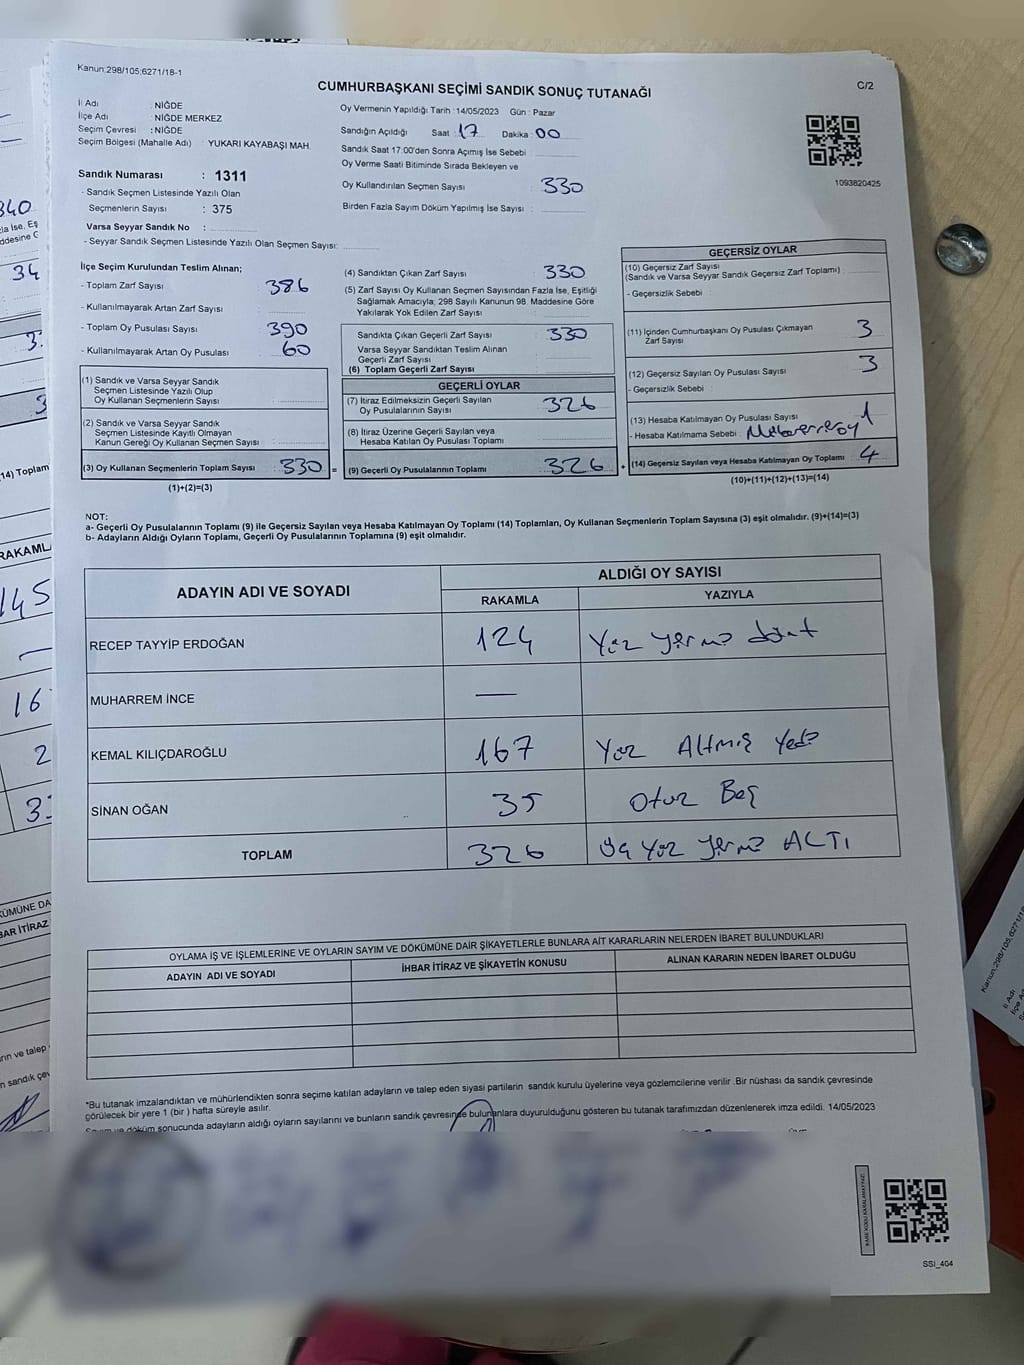 Kanun:298/105;6271/18-1
CUMHURBAŞKANI SEÇİMİ SANDIK SONUÇ TUTANAĞI
C/2
İl Adı : NİĞDE
İlçe Adı : NİĞDE MERKEZ
Seçim Çevresi : NİĞDE
Seçim Bölgesi (Mahalle Adı) : YUKARI KAYABAŞI MAH.
Oy Vermenin Yapıldığı Tarih : 14/05/2023 Gün : Pazar
Sandığın Açıldığı Saat : 17 Dakika : 00
Sandık Saat 17:00'den Sonra Açımış İse Sebebi
Oy Verme Saati Bitiminde Sırada Bekleyen ve
Oy Kullandırılan Seçmen Sayısı : 330
Birden Fazla Sayım Döküm Yapılmış İse Sayısı :
1093820425
Sandık Numarası : 1311
- Sandık Seçmen Listesinde Yazılı Olan
Seçmenlerin Sayısı : 375
Varsa Seyyar Sandık No :
- Seyyar Sandık Seçmen Listesinde Yazılı Olan Seçmen Sayısı:
İlçe Seçim Kurulundan Teslim Alınan;
- Toplam Zarf Sayısı : 386
- Kullanılmayarak Artan Zarf Sayısı :
- Toplam Oy Pusulası Sayısı : 390
- Kullanılmayarak Artan Oy Pusulası : 60
(1) Sandık ve Varsa Seyyar Sandık
Seçmen Listesinde Yazılı Olup
Oy Kullanan Seçmenlerin Sayısı :
(2) Sandık ve Varsa Seyyar Sandık
Seçmen Listesinde Kayıtlı Olmayan
Kanun Gereği Oy Kullanan Seçmen Sayısı :
(3) Oy Kullanan Seçmenlerin Toplam Sayısı : 330 =
(1)+(2)=(3)
(4) Sandıktan Çıkan Zarf Sayısı : 330
(5) Zarf Sayısı Oy Kullanan Seçmen Sayısından Fazla İse, Eşitliği
Sağlamak Amacıyla; 298 Sayılı Kanunun 98. Maddesine Göre
Yakılarak Yok Edilen Zarf Sayısı :
Sandıkta Çıkan Geçerli Zarf Sayısı : 330
Varsa Seyyar Sandıktan Teslim Alınan
Geçerli Zarf Sayısı :
(6) Toplam Geçerli Zarf Sayısı :
GEÇERLİ OYLAR
(7) İtiraz Edilmeksizin Geçerli Sayılan
Oy Pusulalarının Sayısı : 326
(8) İtiraz Üzerine Geçerli Sayılan veya
Hesaba Katılan Oy Pusulası Toplamı :
(9) Geçerli Oy Pusulalarının Toplamı : 326 +
GEÇERSİZ OYLAR
(10) Geçersiz Zarf Sayısı
(Sandık ve Varsa Seyyar Sandık Geçersiz Zarf Toplamı) :
- Geçersizlik Sebebi :
(11) İçinden Cumhurbaşkanı Oy Pusulası Çıkmayan
Zarf Sayısı : 3
(12) Geçersiz Sayılan Oy Pusulası Sayısı : 3
- Geçersizlik Sebebi :
(13) Hesaba Katılmayan Oy Pusulası Sayısı : 1
- Hesaba Katılmama Sebebi :
(14) Geçersiz Sayılan veya Hesaba Katılmayan Oy Toplamı : 4
(10)+(11)+(12)+(13)=(14)
NOT:
a- Geçerli Oy Pusulalarının Toplamı (9) ile Geçersiz Sayılan veya Hesaba Katılmayan Oy Toplamı (14) Toplamları, Oy Kullanan Seçmenlerin Toplam Sayısına (3) eşit olmalıdır. (9)+(14)=(3)
b- Adayların Aldığı Oyların Toplamı, Geçerli Oy Pusulalarının Toplamına (9) eşit olmalıdır.
ADAYIN ADI VE SOYADI
ALDIĞI OY SAYISI
RAKAMLA YAZIYLA
RECEP TAYYİP ERDOĞAN 124 Yüz yirmi dört
MUHARREM İNCE —
KEMAL KILIÇDAROĞLU 167 Yüz Altmış Yedi
SİNAN OĞAN 35 Otuz Beş
TOPLAM 326 Üç Yüz Yirmi ALTI
OYLAMA İŞ VE İŞLEMLERİNE VE OYLARIN SAYIM VE DÖKÜMÜNE DAİR ŞİKAYETLERLE BUNLARA AİT KARARLARIN NELERDEN İBARET BULUNDUKLARI
ADAYIN ADI VE SOYADI İHBAR İTİRAZ VE ŞİKAYETİN KONUSU ALINAN KARARIN NEDEN İBARET OLDUĞU
*Bu tutanak imzalandıktan ve mühürlendikten sonra seçime katılan adayların ve talep eden siyasi partilerin sandık kurulu üyelerine veya gözlemcilerine verilir .Bir nüshası da sandık çevresinde
görülecek bir yere 1 (bir ) hafta süreyle asılır.
Sayım ve döküm sonucunda adayların aldığı oyların sayılarını ve bunların sandık çevresinde bulunanlara duyurulduğunu gösteren bu tutanak tarafımızdan düzenlenerek imza edildi. 14/05/2023
SSİ_404